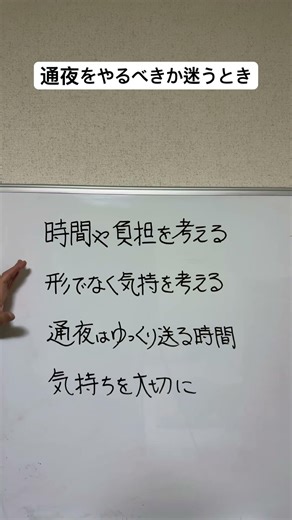 通夜をやるべきか迷うとき
時間や負担を考える
形でなく気持を考える
通夜はゆっくり送る時間
気持ちを大切に